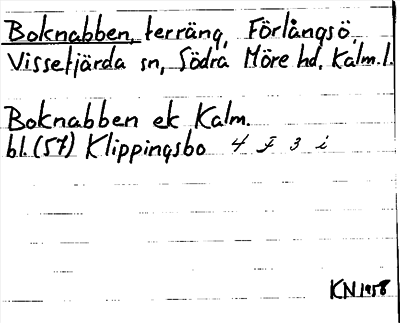 Boknabben, terräng, Förlångsö,
Vissefjärda sn, Södra Möre hd, Kalm. l.
Boknabben ek Kalm.
bl. (57) Klippingsbo 4 F 3 i
KN 1958